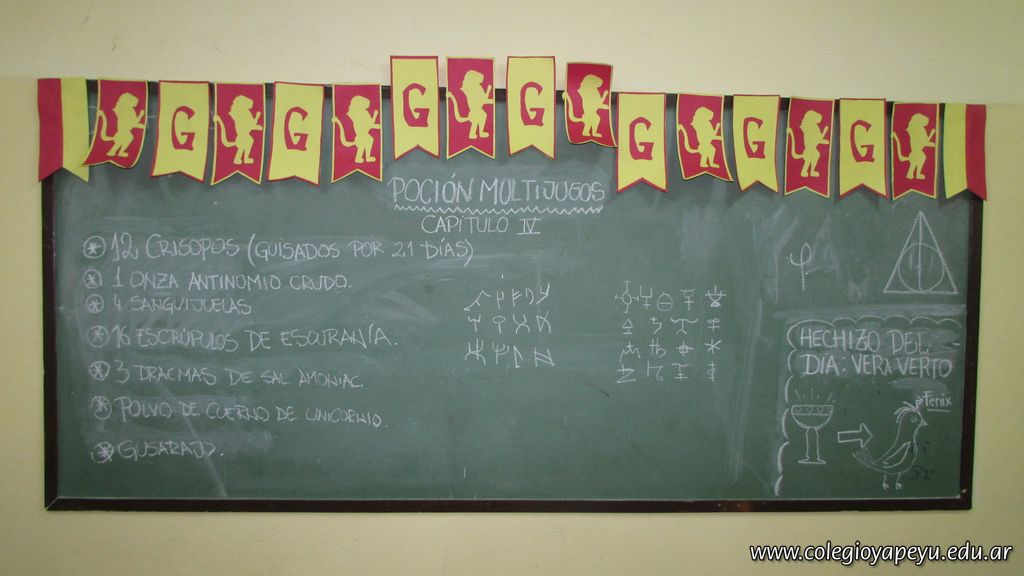 G G G G G G G
POCIÓN MULTIJUGOS
CAPITULO IV
12 CRISOPOS (GUISADOS POR 21 DÍAS)
1 ONZA ANTINOMIO CRUDO.
4 SANGUIJUELAS
16 ESCRÚPULOS DE ESCURANÍA.
3 DRACMAS DE SAL AMONIAC
POLVO DE CUERNO DE UNICORNIO.
GUSARAJO.
HECHIZO DEL
DIA: VERA VERTO
Fenix
www.colegioyapeyu.edu.ar